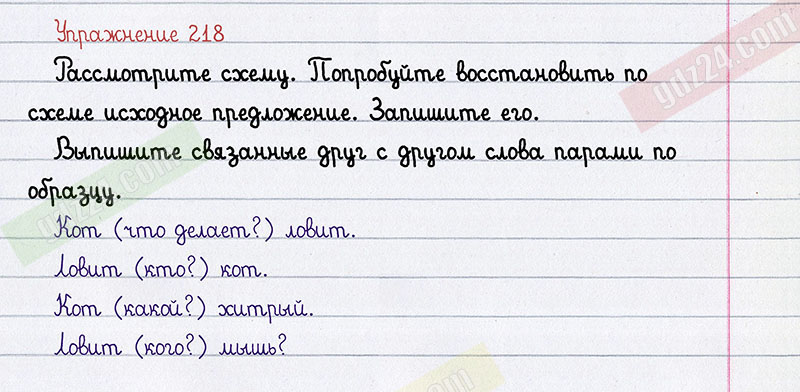 Упражнение 218
Рассмотрите схему. Попробуйте восстановить по
схеме исходное предложение. Запишите его.
Выпишите связанные друг с другом слова парами по
образцу.
Кот (что делает?) ловит.
Ловит (кто?) кот.
Кот (какой?) хитрый.
Ловит (кого?) мышь?
gdz24.com
gdz24.com